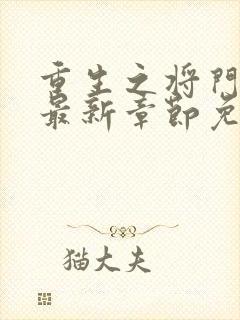 重生之将門
最新章節免
猫大夫